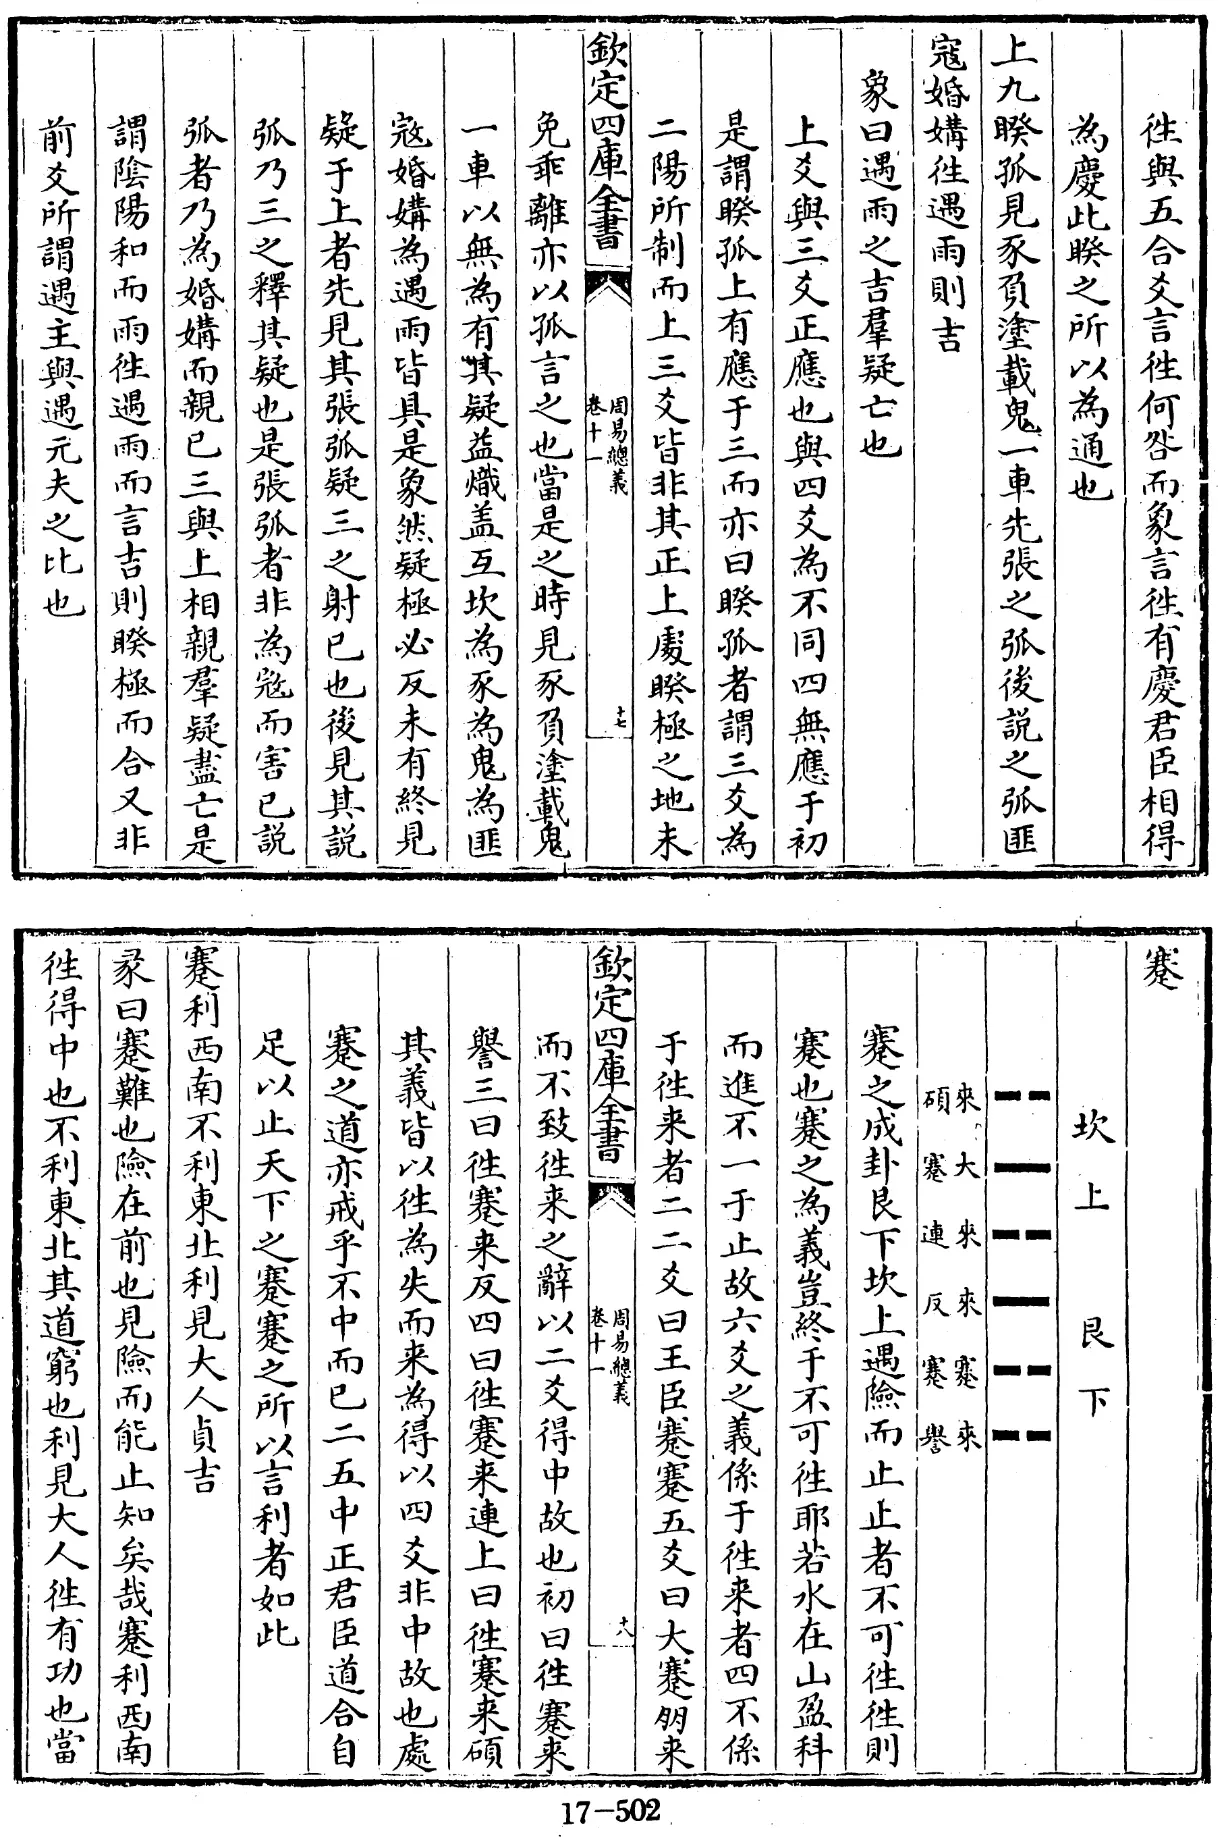 徃與五合爻言徃何咎而象言徃有慶君臣相得
為慶此睽之所以為通也
上九睽孤見豕負塗載鬼一車先張之弧後説之弧匪
寇婚媾徃遇雨則吉
象曰遇雨之吉羣疑亡也
上爻與三爻正應也與四爻為不同四無應于初
是謂睽孤上有應于三而亦曰睽孤者謂三爻為
二陽所制而上三爻皆非其正上處睽極之地未
欽定四庫全書
周易總義
卷十一
十七
免乖離亦以孤言之也當是之時見豕負塗載鬼
一車以無為有其疑益熾盖互坎為豕為鬼為匪
寇婚媾為遇雨皆具是象然疑極必反未有終見
疑于上者先見其張弧疑三之射已也後見其説
弧乃三之釋其疑也是張弧者非為寇而害已説
弧者乃為婚媾而親已三與上相親羣疑盡亡是
謂陰陽和而雨徃遇雨而言吉則睽極而合又非
前爻所謂遇主與遇元夫之比也
蹇
坎上 艮下
來 大 來 來 蹇 來
碩 蹇 連 反 蹇 譽
蹇之成卦艮下坎上遇險而止止者不可徃徃則
蹇也蹇之為義豈終于不可徃耶若水在山盈科
而進不一于止故六爻之義係于徃来者四不係
于徃来者二二爻曰王臣蹇蹇五爻曰大蹇朋来
欽定四庫全書
周易總義
卷十一
十八
而不致徃来之辭以二爻得中故也初曰徃蹇来
譽三曰徃蹇来反四曰徃蹇来連上曰徃蹇来碩
其義皆以徃為失而来為得以四爻非中故也處
蹇之道亦戒乎不中而已二五中正君臣道合自
足以止天下之蹇蹇之所以言利者如此
蹇利西南不利東北利見大人貞吉
彖曰蹇難也險在前也見險而能止知矣哉蹇利西南
徃得中也不利東北其道窮也利見大人徃有功也當
17-502